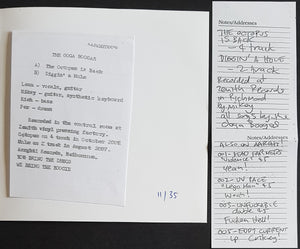 THE OOGA BOOGAS
A) The Octopus is Back
B) Diggin' a Hole
Leon - vocals, guitar
Mikey - guitar, synthetic keyboard
Rich - bass
Per - drums
Recorded in the control room at
Zenith vinyl pressing factory.
Octopus on 4 track in October 2006
Hole on 2 track in August 2007.
Aarght! Records, Melbourne.
YOU BRING THE DRUGS
WE BRING THE BOOGIE
11/35
Notes/Addresses
THE OCTOPUS
IS BACK
- 4 track
DIGGIN' A HOLE
- 2 track
Recorded at
Zenith Records
in Richmond
by Mikey
all songs by the
Ooga Boogas
Notes/Addresses
ALSO ON AARGHT!
001-
Violence! $5
Yeah!
002- UV RACE
"Lego Man" $5
Woah!
003-
$5
Fuckin Hell!
005- EDDY CURRENT
LP Coming!